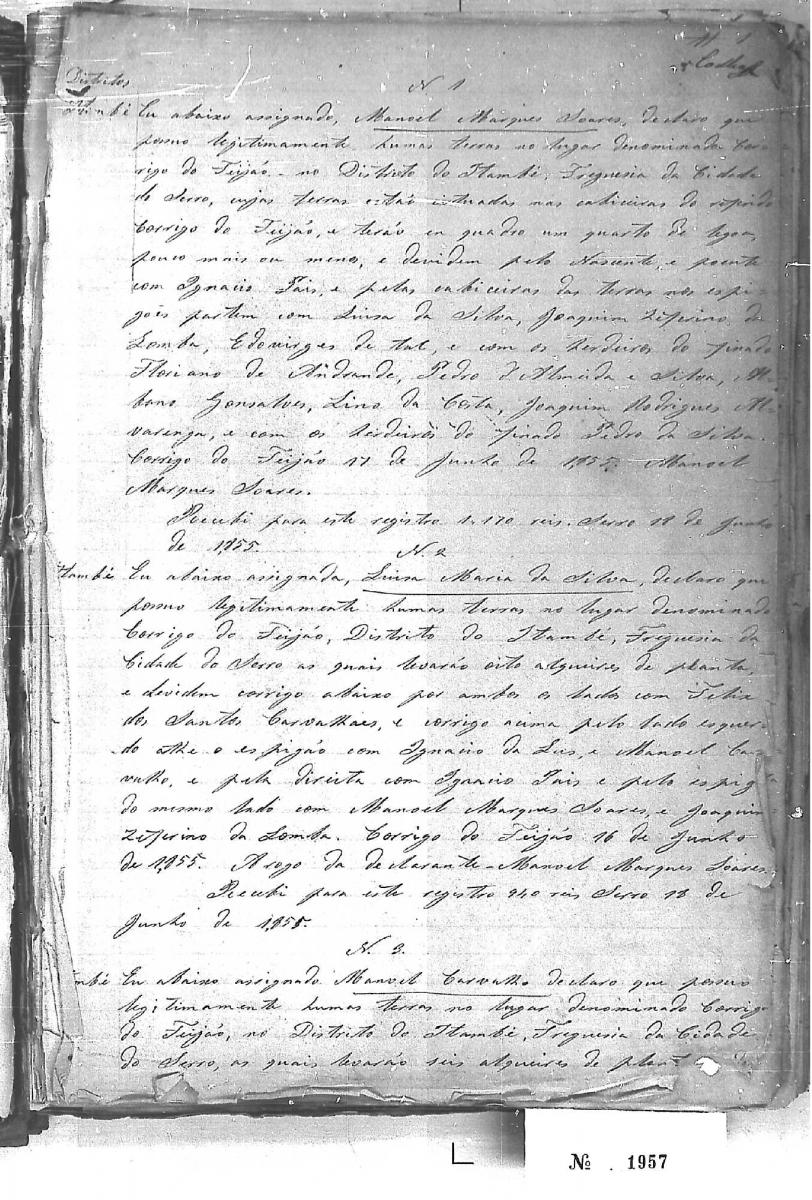 N. 1
Districtos
Itambé Eu abaixo assignado, Manoel Marques Soares, declaro que
possuo legitimamente humas terras no lugar denominado Cor
rigo do Feijão no Districto do Itambé, Freguesia da Cidade
do Serro, cujas terras estão cituadas nas cabiceiras do referido
Corrigo do Feijão, e terão en quadro um quarto de legoa,
pouco mais ou meno, e devidem pelo Nascente, e poente
com Ignacio Pais, e pelas cabiceiras das terras nos espi-
goes partem com Luisa da Silva, Joaquim Zeferino da
Lomba, Edovirges de tal, e com os herdeiros do finado
Floriano de Andrande, Pedro d'Almeida e Silva, Al
bano Gonsalves, Lino da Costa, Joaquim Rodrigues Al
varenga, e com os herdeiros do finado Pedro da Silva.
Corrigo do Feijão 17 de Junho de 1855. Manoel
Marques Soares.
Recebi para este registro 1.170 reis. Serro 18 de Junho
de 1855.
N. 2
Itambé Eu abaixo assignada, Luisa Maria da Silva, declaro que
possuo legitimamente humas terras no lugar denominado
Corrigo do Feijão, Districto do Itambé, Freguesia da
Cidade do Serro as quais levarão oito alqueires de planta,
e devidem corrigo abaixo por ambos os lados com Felix
dos Santos Carvalhaes, e corrigo acima pelo lado esquer-
do athe o espigão com Ignacio da Lus, e Manoel Car
valho, e pela direita com Ignacio Pais e pelo espig
do mesmo lado com Manoel Marques Soares, e Joaquim
Zeferino da Lomba. Corrigo do Feijão 16 de Junho
de 1855. A rogo da declarante - Manoel Marques Soares.
Recebi para este registro 940 reis Serro 18 de
Junho de 1855.
N. 3.
mbé Eu abaixo assignado Manoel Carvalho declaro que possuo
legitimamente humas terras no lugar denominado Corrigo
do Feijão, no Districto do Itambé, Freguesia da Cidade
do Serro, as quais levarão seis alqueires de plant
Nº . 1957